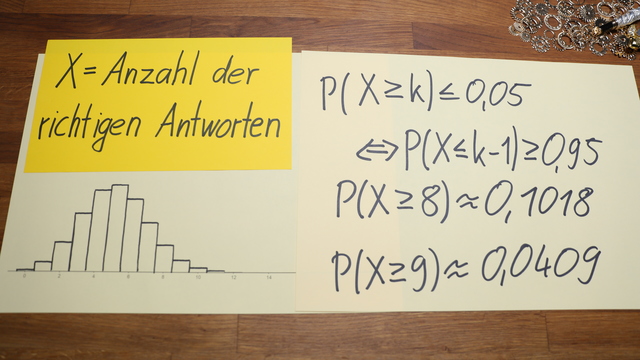 X = Anzahl der
richtigen Antworten
P(X≥k)≤0,05
⇔P(X≤k-1)≥0,95
P(X≥8)≈0,1018
P(X≥9)≈0,0409
0 2 4 6 8 10 12 14